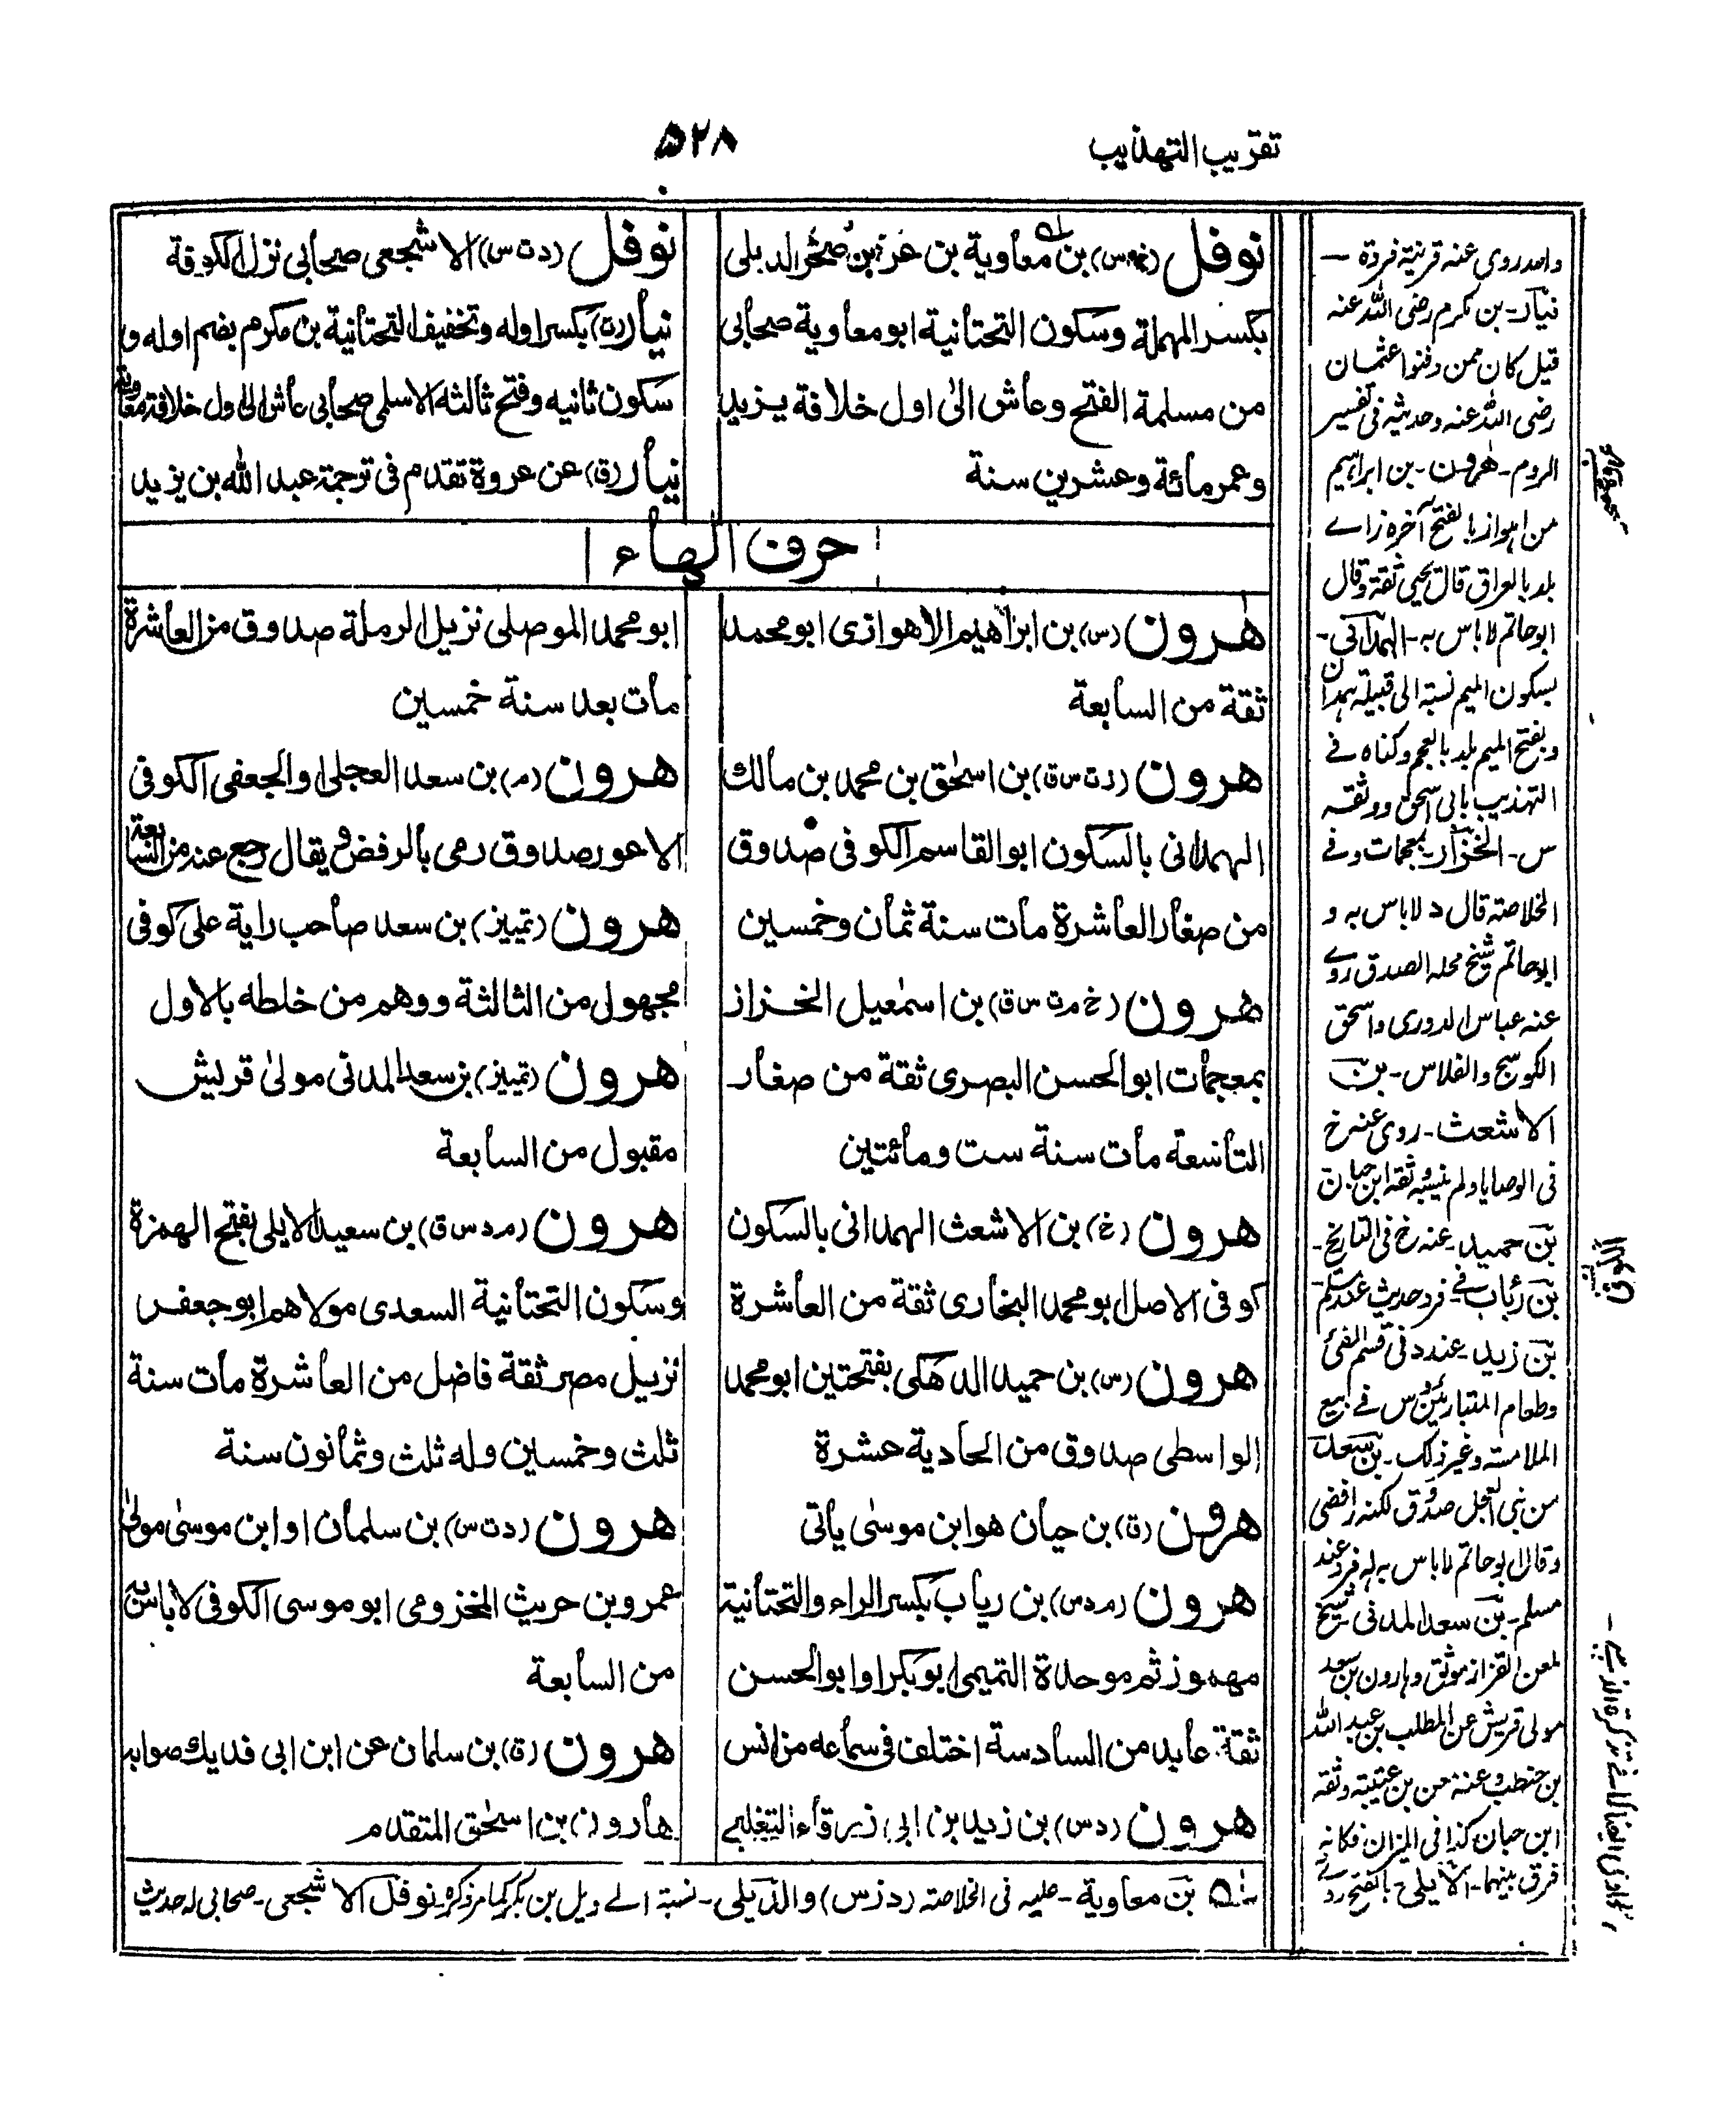 تقريب التهذيب
٥٢٨
نوفل (خ م س) بن معاوية بن عروة بن صخر الديلى
بكسر المهملة وسكون التحتانية ابو معاوية صحابى
من مسلمة الفتح وعاش الى اول خلافة يزيد
وعمر مائة وعشرين سنة
نوفل (د ت س) الاشجعى صحابى نزل الكوفة
نيار (ت) بكسر اوله وتخفيف التحتانية بن مكرم بضم اوله و
سكون ثانيه وفتح ثالثه الاسلمى صحابى عاش الى اول خلافة معاوية
نيار (ق) عن عروة تقدم فى ترجمة عبد الله بن يزيد
حرف الهاء
هرون (س) بن ابراهيم الاهوازى ابو محمد
ثقة من السابعة
هرون (ر ت س ق) بن اسحٰق بن محمد بن مالك
الهمدانى بالسكون ابو القاسم الكوفى صدوق
من صغار العاشرة مات سنة ثمان وخمسين
هرون (خ م ت س ق) بن اسمٰعيل الخزاز
بمعجمات ابو الحسن البصرى ثقة من صغار
التاسعة مات سنة ست ومائتين
هرون (خ) بن الاشعث الهمدانى بالسكون
كوفى الاصل ابو محمد البخارى ثقة من العاشرة
هرون (س) بن حميد الدهكى بفتحتين ابو محمد
الواسطى صدوق من الحادية عشرة
هرون (ق) بن حيان هو ابن موسىٰ ياتى
هرون (م د س) بن رياب بكسر الراء والتحتانية
مهموز ثم موحدة التميمى ابو بكر او ابو الحسن
ثقة عابد من السادسة اختلف فى سماعه من انس
هرون (د س) بن زيد بن ابى زرقاء التغلبى
ابو محمد الموصلى نزيل الرملة صدوق من العاشرة
مات بعد سنة خمسين
هرون (م) بن سعد العجلى او الجعفى الكوفى
الاعور صدوق رمى بالرفض ويقال رجع عنه من السابعة
هرون (تمييز) بن سعد صاحب راية على كوفى
مجهول من الثالثة ووهم من خلطه بالاول
هرون (تمييز) بن سعد المدنى مولىٰ قريش
مقبول من السابعة
هرون (م د س ق) بن سعيد الايلى بفتح الهمزة
وسكون التحتانية السعدى مولاهم ابو جعفر
نزيل مصر ثقة فاضل من العاشرة مات سنة
ثلث وخمسين وله ثلث وثمانون سنة
هرون (د ت س) بن سلمان او ابن موسىٰ مولىٰ
عمرو بن حريث المخزومى ابو موسى الكوفى لا باس به
من السابعة
هرون (ق) بن سلمان عن ابن ابى فديك صوابه
هارون بن اسحٰق المتقدم
بن معاوية - عليه فى الخلاصة (د ز س) والديلى - نسبة الے ديل بن بكر كما مر ذكره نوفل الاشجعى - صحابى له حديث
واحد روى عنه قرينة فروة -
نيار - بن مكرم رضى الله عنه
قيل كان ممن دفنوا عثمان
رضى الله عنه وحديثه فى تفسير
الروم - هرون - بن ابراهيم
من اهواز بالفتح آخره زاے
بلد بالعراق قال يحيى ثقة وقال
ابو حاتم لا باس به - الهمدانى -
بسكون الميم نسبة الى قبيلة همدان
وبفتح الميم بلد بالعجم وكناه فے
التهذيب بابى اسحق ووثقه
س - الخزاز - بمعجمات وفے
الخلاصة قال د لا باس به و
ابو حاتم شيخ محله الصدق روے
عنه عباس الدورى واسحق
الكوسج والفلاس - بن
الاشعث - روى عنه خ
فى الوصايا ولم ينسبه وثقه ابن حبان
بن حميد - عنه خ فى التاريخ -
بن رئاب - فے فرد حديث عند مسلم
بن زيد - عند د فى قسم الفئ
وطعام المتبارئين وس فے بيع
الملامسة وغير ذلك - بن سعد
من بنى العجل صدوق لكنه رافضى
وقال ابو حاتم لا باس به له فرد عند
مسلم - بن سعد المدنى شيخ
لمعن القزاز موثق وهارون بن سعد
مولى قريش عن المطلب بن عبد الله
بن حنطب وعنه معن بن عيسى وثقه
ابن حبان كذا فى الميزان فكانه
فرق بينهما - الايلى - بالفتح روے